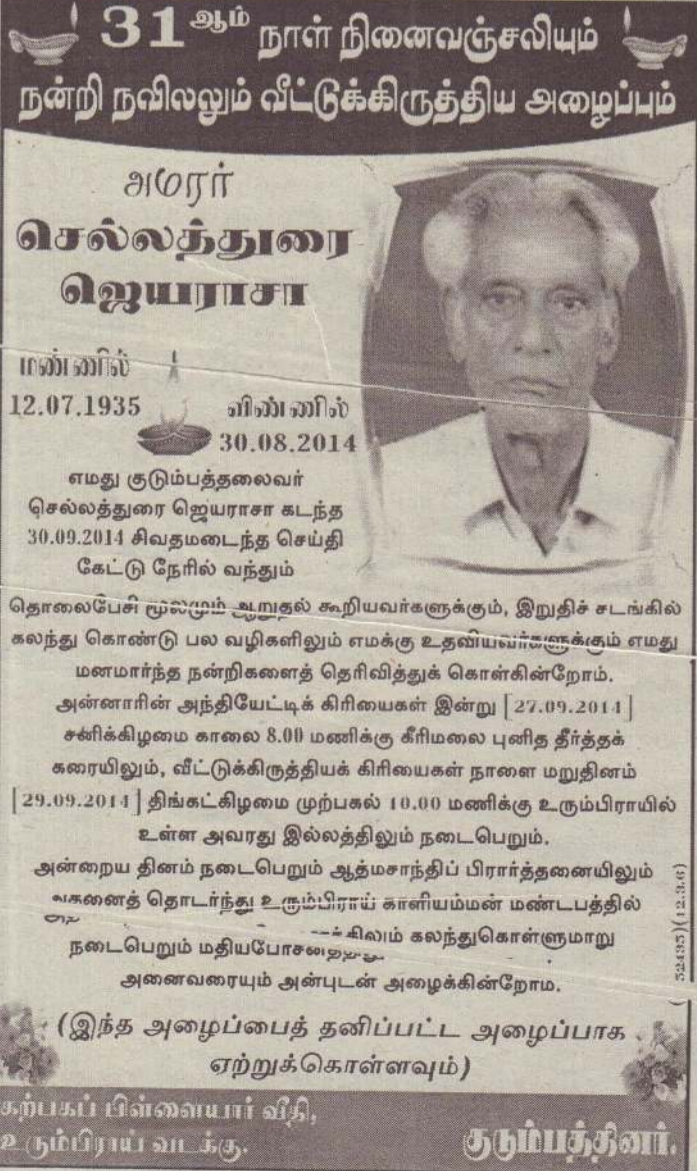 31ஆம் நாள் நினைவஞ்சலியும்
நன்றி நவிலலும் வீட்டுக்கிருத்திய அழைப்பும்
அமரர்
செல்லத்துரை
ஜெயராசா
மண்ணில்
12.07.1935
விண்ணில்
30.08.2014
எமது குடும்பத்தலைவர்
செல்லத்துரை ஜெயராசா கடந்த
30.09.2014 சிவதமடைந்த செய்தி
கேட்டு நேரில் வந்தும்
தொலைபேசி மூலமும் ஆறுதல் கூறியவர்களுக்கும், இறுதிச் சடங்கில்
கலந்து கொண்டு பல வழிகளிலும் எமக்கு உதவியவர்களுக்கும் எமது
மனமார்ந்த நன்றிகளைத் தெரிவித்துக் கொள்கின்றோம்.
அன்னாரின் அந்தியேட்டிக் கிரியைகள் இன்று [27.09.2014]
சனிக்கிழமை காலை 8.00 மணிக்கு கீரிமலை புனித தீர்த்தக்
கரையிலும், வீட்டுக்கிருத்தியக் கிரியைகள் நாளை மறுதினம்
[29.09.2014] திங்கட்கிழமை முற்பகல் 10.00 மணிக்கு உரும்பிராயில்
உள்ள அவரது இல்லத்திலும் நடைபெறும்.
அன்றைய தினம் நடைபெறும் ஆத்மசாந்திப் பிரார்த்தனையிலும்
தொடர்ந்து உரும்பிராய் காளியம்மன் மண்டபத்தில்
நடைபெறும் கலந்துகொள்ளுமாறு
அனைவரையும் அன்புடன் அழைக்கின்றோம.
(இந்த அழைப்பைத் தனிப்பட்ட அழைப்பாக
ஏற்றுக்கொள்ளவும்)
கற்பகப் பிள்ளையார் வீதி,
உரும்பிராய் வடக்கு.
குடும்பத்தினர்.
52495)(12.3.6)